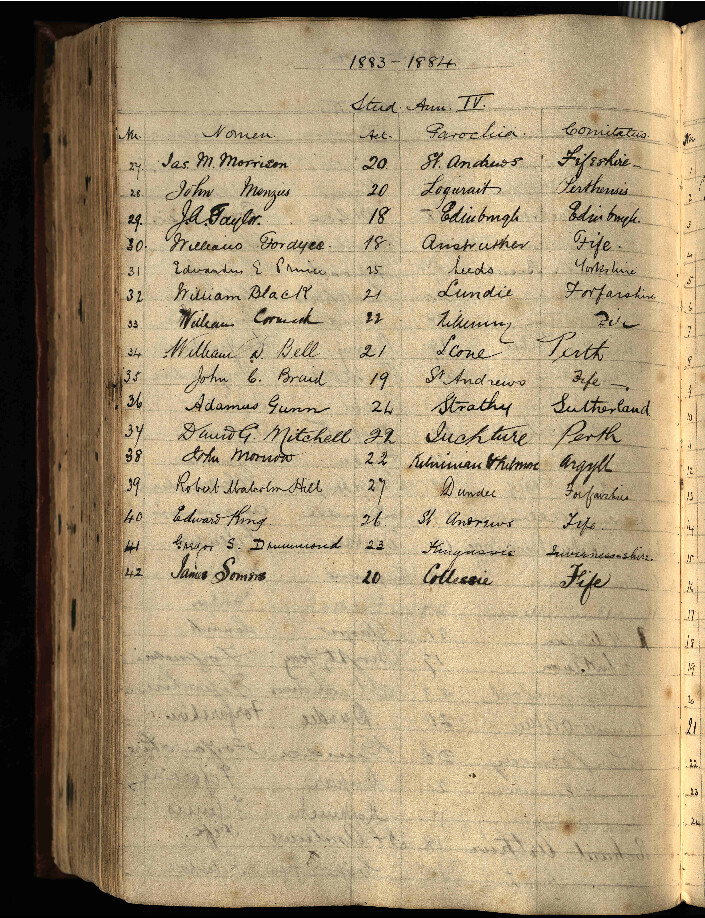 1883 - 1884
Stud. Ann. IV.
No. Nomen. Aet. Parochia. Comitatus. No.
27 Jas M. Morrison 20 St. Andrews Fifeshire
28 John Menzies 20 Logierait Perthensis
29. J.A. Taylor. 18 Edinburgh Edinburgh.
30. William Fordyce. 18. Anstruther Fife.
31 E 25 Leeds Yorkshire
32 William Black 21 Lundie Forfarshire
33 William Cormack 22 Kilrenny Fife
34 William D. Bell 21 Scone Perth
35 John C. Braid 19 St Andrews Fife
36 Adamus Gunn 24 Strathy Sutherland
37 David G. Mitchell 22 Inchture Perth
38 John 22 Argyll
39 Robert Malcolm Hill 27 Dundee Forfarshire
40 Edward King. 26 St. Andrews Fife.
41 Gregor S. Drummond 23 Kingussie Invernessshire.
42 James Somers 20 Collessie Fife